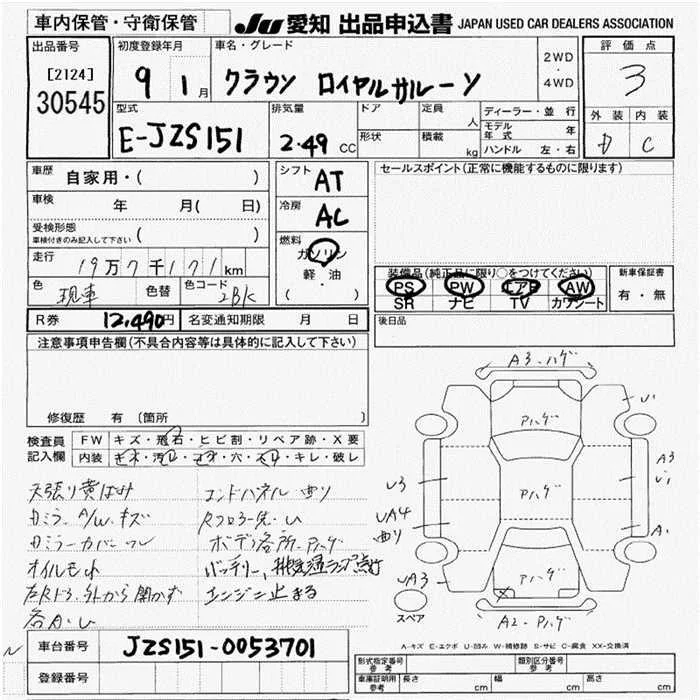 車内保管・守衛保管
JU 愛知 出品申込書 JAPAN USED CAR DEALERS ASSOCIATION
出品番号
[2124]
30545
初度登録年月
9 1月
車名・グレード
クラウン ロイヤルサルーン
2WD
・
4WD
評価点
3
外装 内装
D C
型式
E-JZS151
排気量
2.49 CC
ドア
形状
定員
人
積載
kg
ディーラー・並行
モデル年式 年
ハンドル 左・右
車歴
自家用・( )
車検
年 月( 日)
受検形態
車検付きのみ記入して下さい ( )
走行
19万7千171km
色
現車
色替
色コード
2BK
シフト
AT
冷房
AC
燃料
ガソリン
軽・油
( )
セールスポイント(正常に機能するものに限ります)
装備品(純正品に限り○をつけてください)
PS PW エアB AW
SR ナビ TV カワシート
新車保証書
有・無
R券 12,490円
名変通知期限 月 日
後日品
注意事項申告欄(不具合内容等は具体的に記入して下さい)
修復歴 有 (箇所 )
検査員
記入欄
FW キズ・飛石・ヒビ割・リペア跡・X要
内装 キズ・汚レ・コゲ・穴・スレ・キレ・破レ
天張り黄ばみ
エンドパネル 曲り
Dミラー、A/W、キズ
Dミラーカバーワレ
ボデー各所、Aハゲ
オイルモレ
バッテリー、排気温ランプ点灯
左Rドア、外から開かず
エンジン止まる
各A・U
A3・ハゲ
Aハゲ
Aハゲ
Aハゲ
A2・Aハゲ
U3
UA4
曲り
UA3
スペア
A3
A1
車台番号 JZS151-0053701
登録番号
A-キズ E-エクボ U-凹み W-補修跡 S-サビ C-腐食 XX-交換済
形式指定番号
参考
類別区分番号
参考
車庫証明用
参考
長さ cm
幅 cm
高さ cm